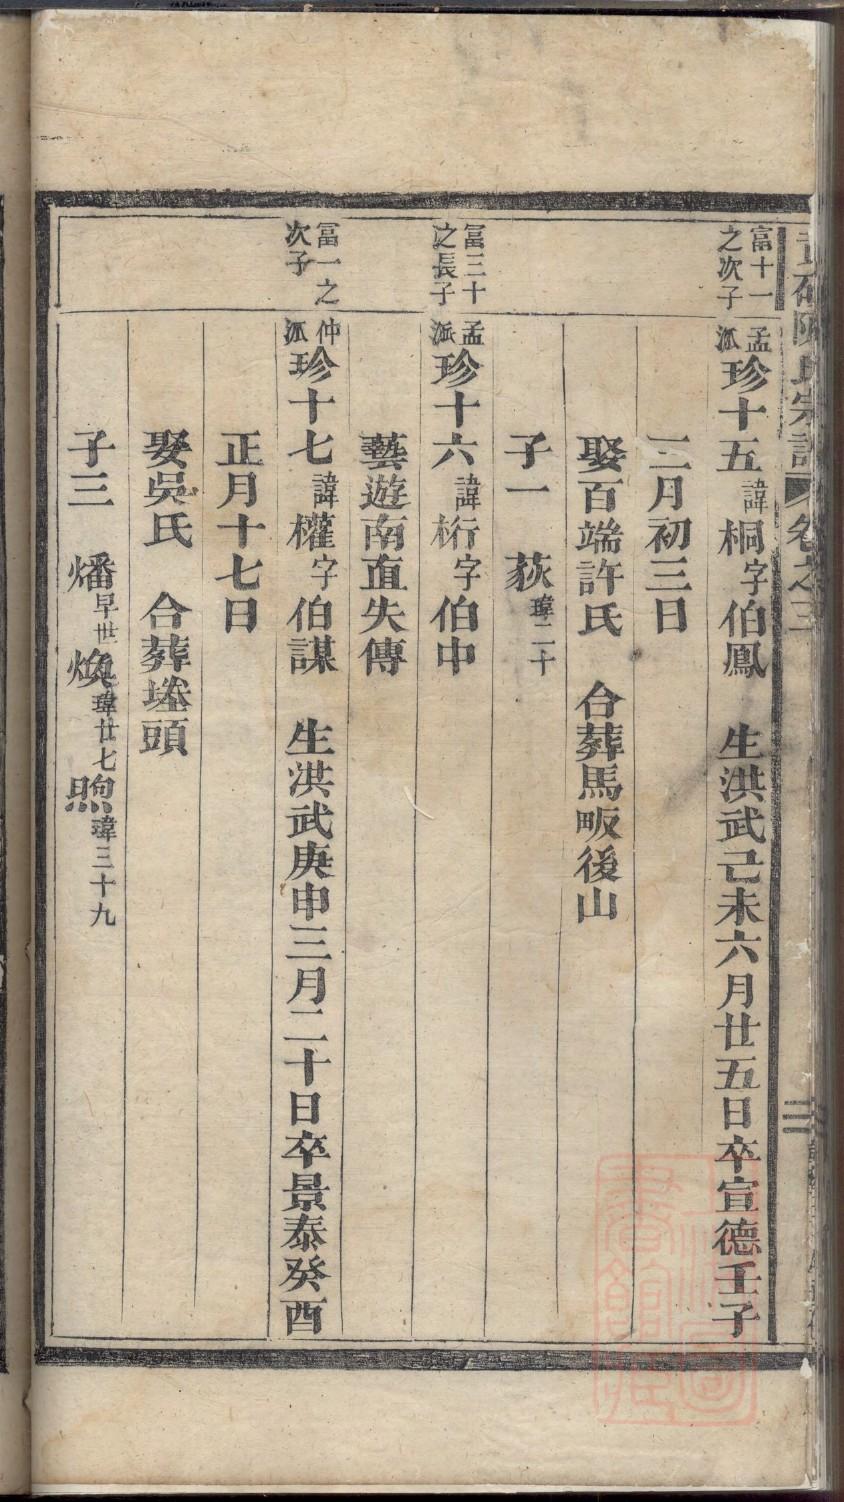 陳氏宗譜 卷之三
富十一之次子
孟派珍十五諱桐字伯鳳 生洪武己未六月廿五日卒宣德壬子
二月初三日
娶百端許氏 合葬馬畈後山
子一 荻瑋二十
富三十之長子
孟派珍十六諱桁字伯中
藝遊南直失傳
富一之次子
仲派珍十七諱權字伯謀 生洪武庚申三月二十日卒景泰癸酉
正月十七日
娶吳氏 合葬塋頭
子三 燔早世 煥瑋廿七 煦瑋三十九